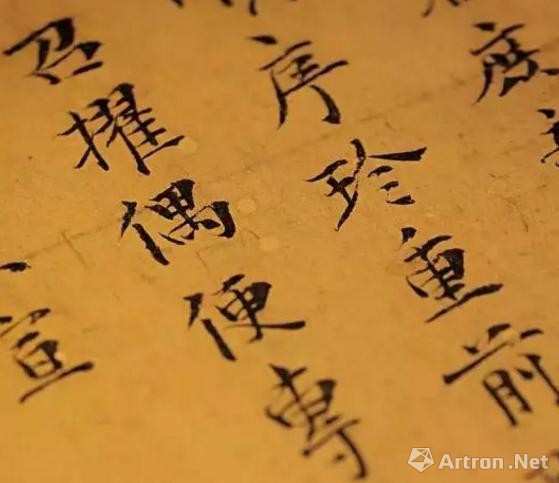 序珍重前
召擢偶便專
宣
Artron.Net